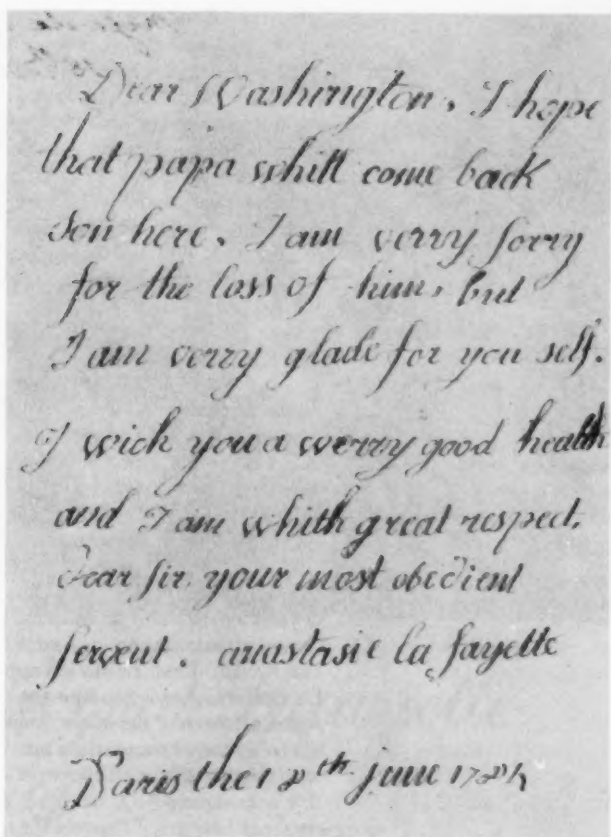 Dear Washington. I hope
that papa whill come back
son here. I am verry sorry
for the loss of him, but
I am verry glade for you self.
I wich you a werry good health
and I am whith great respect.
dear sir your most obedient
servent. anastasie la fayette
Paris the 18th june 1784